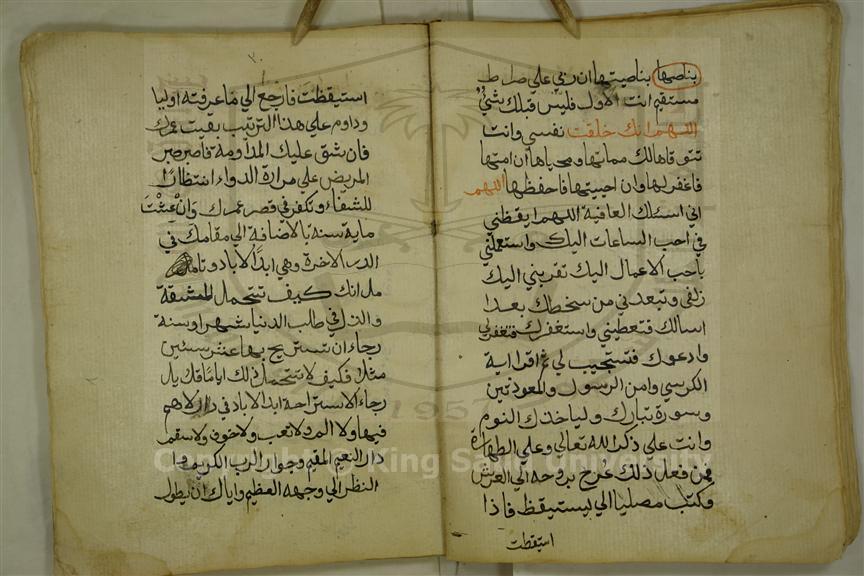 بناصها بناصيتها ان ربي علي صراط
مستقيم انت الاول فليس قبلك شيٌ
اللهم انك خلقت نفسي وانت
تتوفاها لك مماتها ومحياها ان امتها
فاغفر لها وان احييتها فاحفظها اللهم
اني اسئلك العافية اللهم ايقظني
في احب الساعات اليك واستعملني
باحب الاعمال اليك تقربني اليك
زلفي وتبعدني من سخطك بعدا
اسالك فتعطيني واستغفرك فتغفرلي
وادعوك فتستجيب لي ثم اقرا اية
الكرسي وامن الرسول والمعوذتين
وسورة تبارك ولياخذك النوم
وانت علي ذكر الله تعالي وعلي الطهارة
فمن فعل ذلك عُرج بروحه الي العرش
وكتب مصليا الي يستيقظ فاذا
استيقظت
استيقظت فارجع الي ما عرفته اوليا
وداوم علي هذا الترتيب بقيت عمرك
فان شق عليك المداومة فاصبر صبر
المريض علي مرارة الدواء انتظارًا
للشفاء وتكفر في قصر عمرك وان عشت
ماية سنة بالاضافة الي مقامك في
الدر الاخرة وهي ابدًا الاباد وتامل
مل انك كيف تتحمل المشقة
والذل في طلب الدنيا شهرا وسنة
رجاء ان تستريح بها عشر سنين
مثلا فكيف لا تتحمل ذلك اياما قلايل
رجاء الاستراحة ابد الاباد في دار لاهم
فيها ولا الم ولا تعب ولا خوف ولا سقم
دار النعيم المقيم وجوار الرب الكريم وا
النظر الي وجهه العظيم واياك ان يطول
1957
Copyright © King Saud University